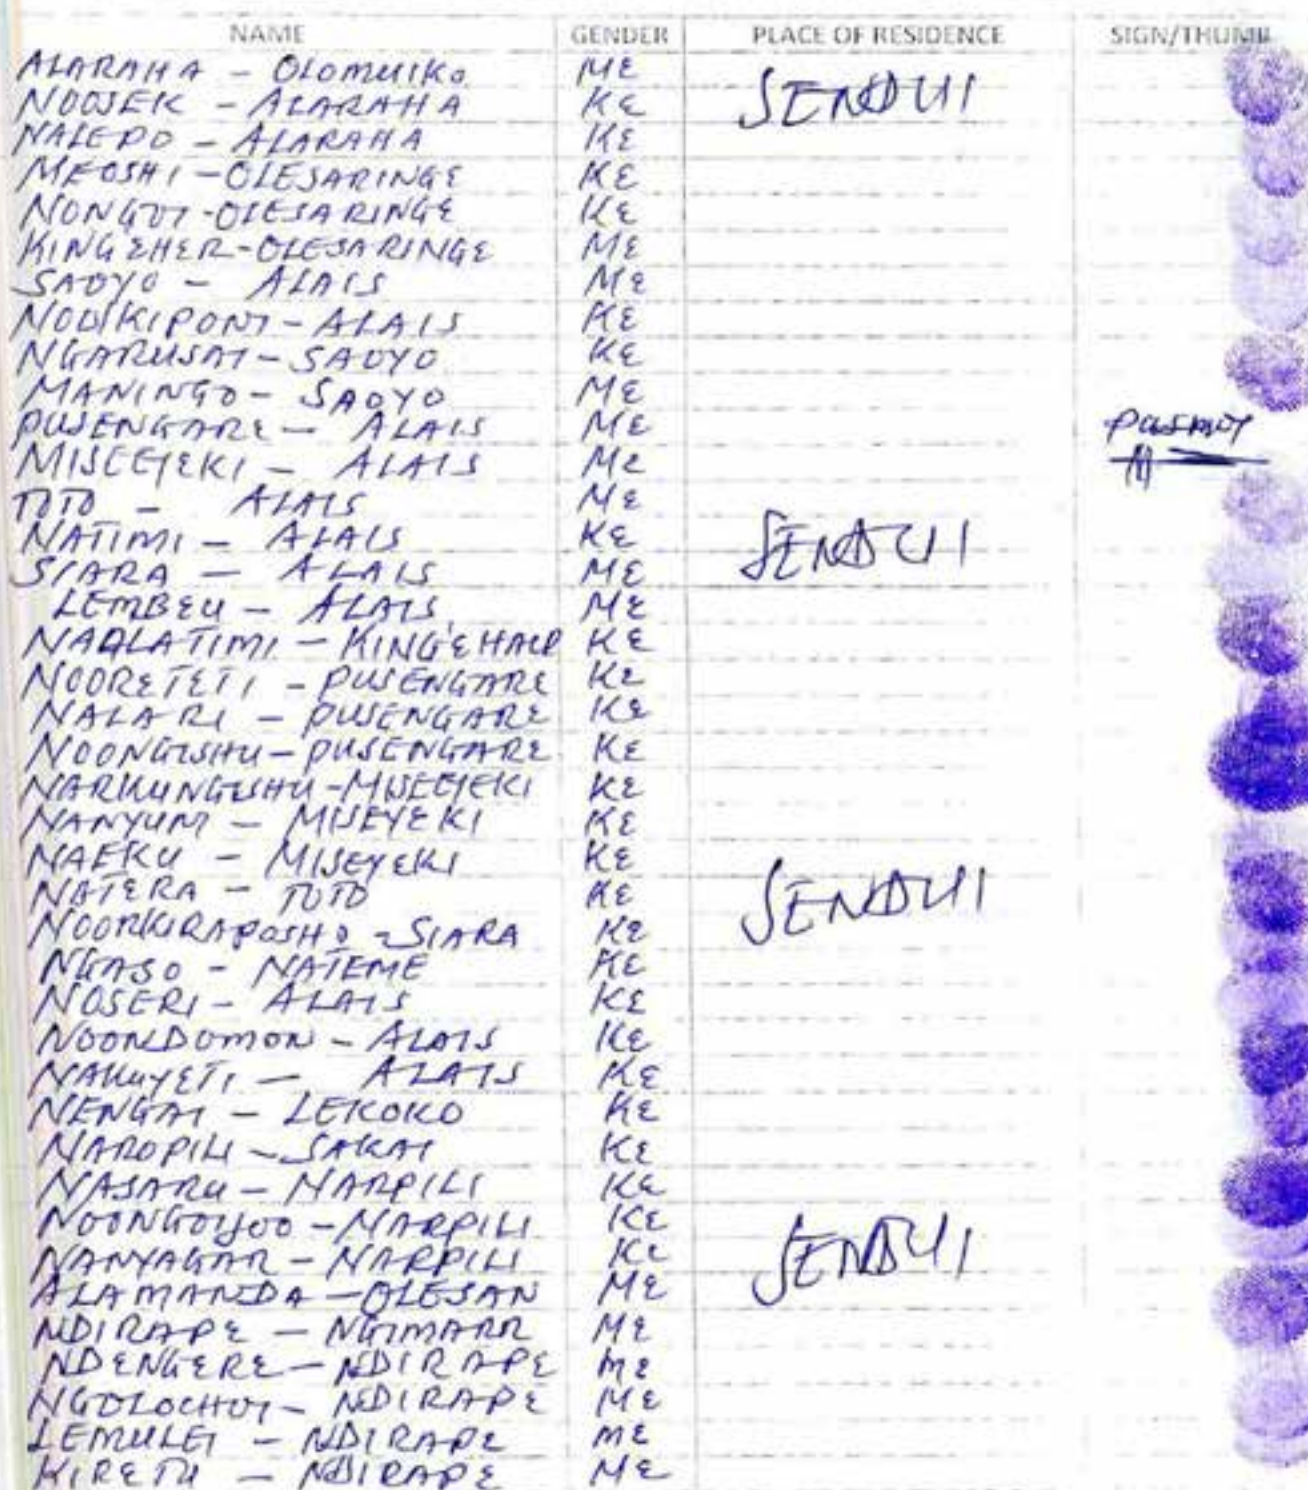 NAME GENDER PLACE OF RESIDENCE SIGN/THUMB
ALARAHA - OLOMUIKO ME SENDUI
NOOSEK - ALARAHA KE
NALEPO - ALARAHA KE
MEOSHI - OLESARINGE KE
NONGOI - OLESARINGE KE
KINGEHER - OLESARINGE ME
SAOYO - ALAIS ME
NOOIKIPONI - ALAIS KE
NGARUSAI - SAOYO KE
MANINGO - SAOYO ME
PUSENGARE - ALAIS ME
MISEEYEKI - ALAIS ME
TOTO - ALAIS ME
NATIMI - ALAIS KE SENDUI
SIARA - ALAIS ME
LEMBEU - ALAIS ME
NAALATIMI - KE
NOORETETI - PUSENGARE KE
NALARI - PUSENGARE KE
NOONGISHU - PUSENGARE KE
NARKUNGISHU - MISEEYEKI KE
NANYUNI - MISEYEKI KE
NAEKU - MISEYEKI KE
NATERA - TOTO KE SENDUI
NOORKIRAPOSHO - SIARA KE
NGASO - NATEME KE
NOSERI - ALAIS KE
NOONDOMON - ALAIS KE
NAKUYETI - ALAIS KE
NENGAI - LEKOKO KE
NAROPILI - SAKAI KE
NASARU - NARPILI KE
NOONGOIJOO - NARPILI KE
NANYAGAR - NARPILI KE SENDUI
ALAMANDA - OLESAN ME
NDIRAPE - NGIMARR ME
NDENGERE - NDIRAPE ME
NGOLOCHOI - NDIRAPE ME
LEMULEI - NDIRAPE ME
KIRETU - NDIRAPE ME